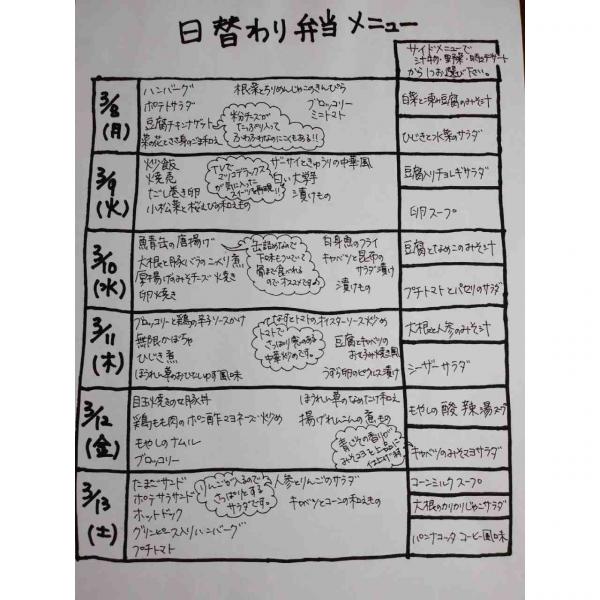 日替わり弁当メニュー
サイドメニューで
汁物・野菜・時々デザート
から1つお選び下さい。
3/8
(月)
ハンバーグ
ポテトサラダ
豆腐チキンナゲット
菜の花とささ身のごま和え
根菜とちりめんじゃこのきんぴら
ブロッコリー
ミニトマト
粉チーズが
たっぷり入って
ふわふわなのにコクもある!!
白菜と凍み豆腐のみそ汁
ひじきと水菜のサラダ
3/9
(火)
炒飯
焼売
だし巻き卵
小松菜と桜えびの和えもの
ザーサイときゅうりの中華風
白い大学芋
漬けもの
TVで
マツコデラックス
が気に入った
スイーツを再現!!
豆腐入りチョレギサラダ
卵スープ
3/10
(水)
鯖缶の唐揚げ
大根と豚バラのこっくり煮
厚揚げのみそチーズ焼き
卵焼き
缶詰めなので
下味もついてて
骨まで食べれる
のでオススメです♪
白身魚のフライ
キャベツと昆布の
サラダ漬け
漬けもの
豆腐となめこのみそ汁
プチトマトとパセリのサラダ
3/11
(木)
ブロッコリーと鶏の辛子ソースかけ
無限かぼちゃ
ひじき煮
ほうれん草のおひたしゆず風味
なすとトマトのオイスターソース炒め
豆腐とキャベツの
おこのみ焼き風
うずら卵のピクルス漬け
トマトで
さっぱり食べれる
中華炒めです。
大根と人参のみそ汁
シーザーサラダ
3/12
(金)
目玉焼きのせ豚丼
鶏もも肉のポン酢マヨネーズ炒め
もやしのナムル
ブロッコリー
ほうれん草のなめたけ和え
揚げれんこんの煮もの
青じその香りが
みそマヨと上品に
仕上げます
もやしの酸辣湯スープ
キャベツのみそマヨサラダ
3/13
(土)
たまごサンド
ポテサラサンド
ホットドック
グリンピース入りハンバーグ
プチトマト
りんごが入るので
さっぱりとする
サラダです。
人参とりんごのサラダ
キャベツとコーンの和えもの
コーンミルクスープ
大根のカリカリじゃこサラダ
パンナコッタ コーヒー風味